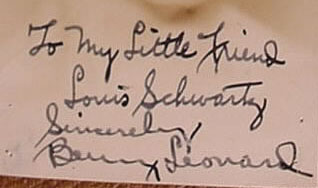 To My Little Friend
Louis Schwartz
Sincerely,
Benny Leonard